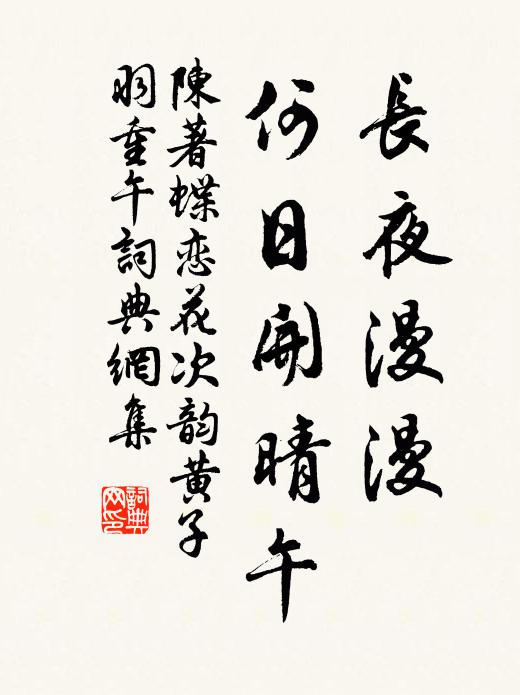 長夜漫漫
何日開晴午
陳著蝶恋花次韵黄子
羽重午詞典網集
詞典網印